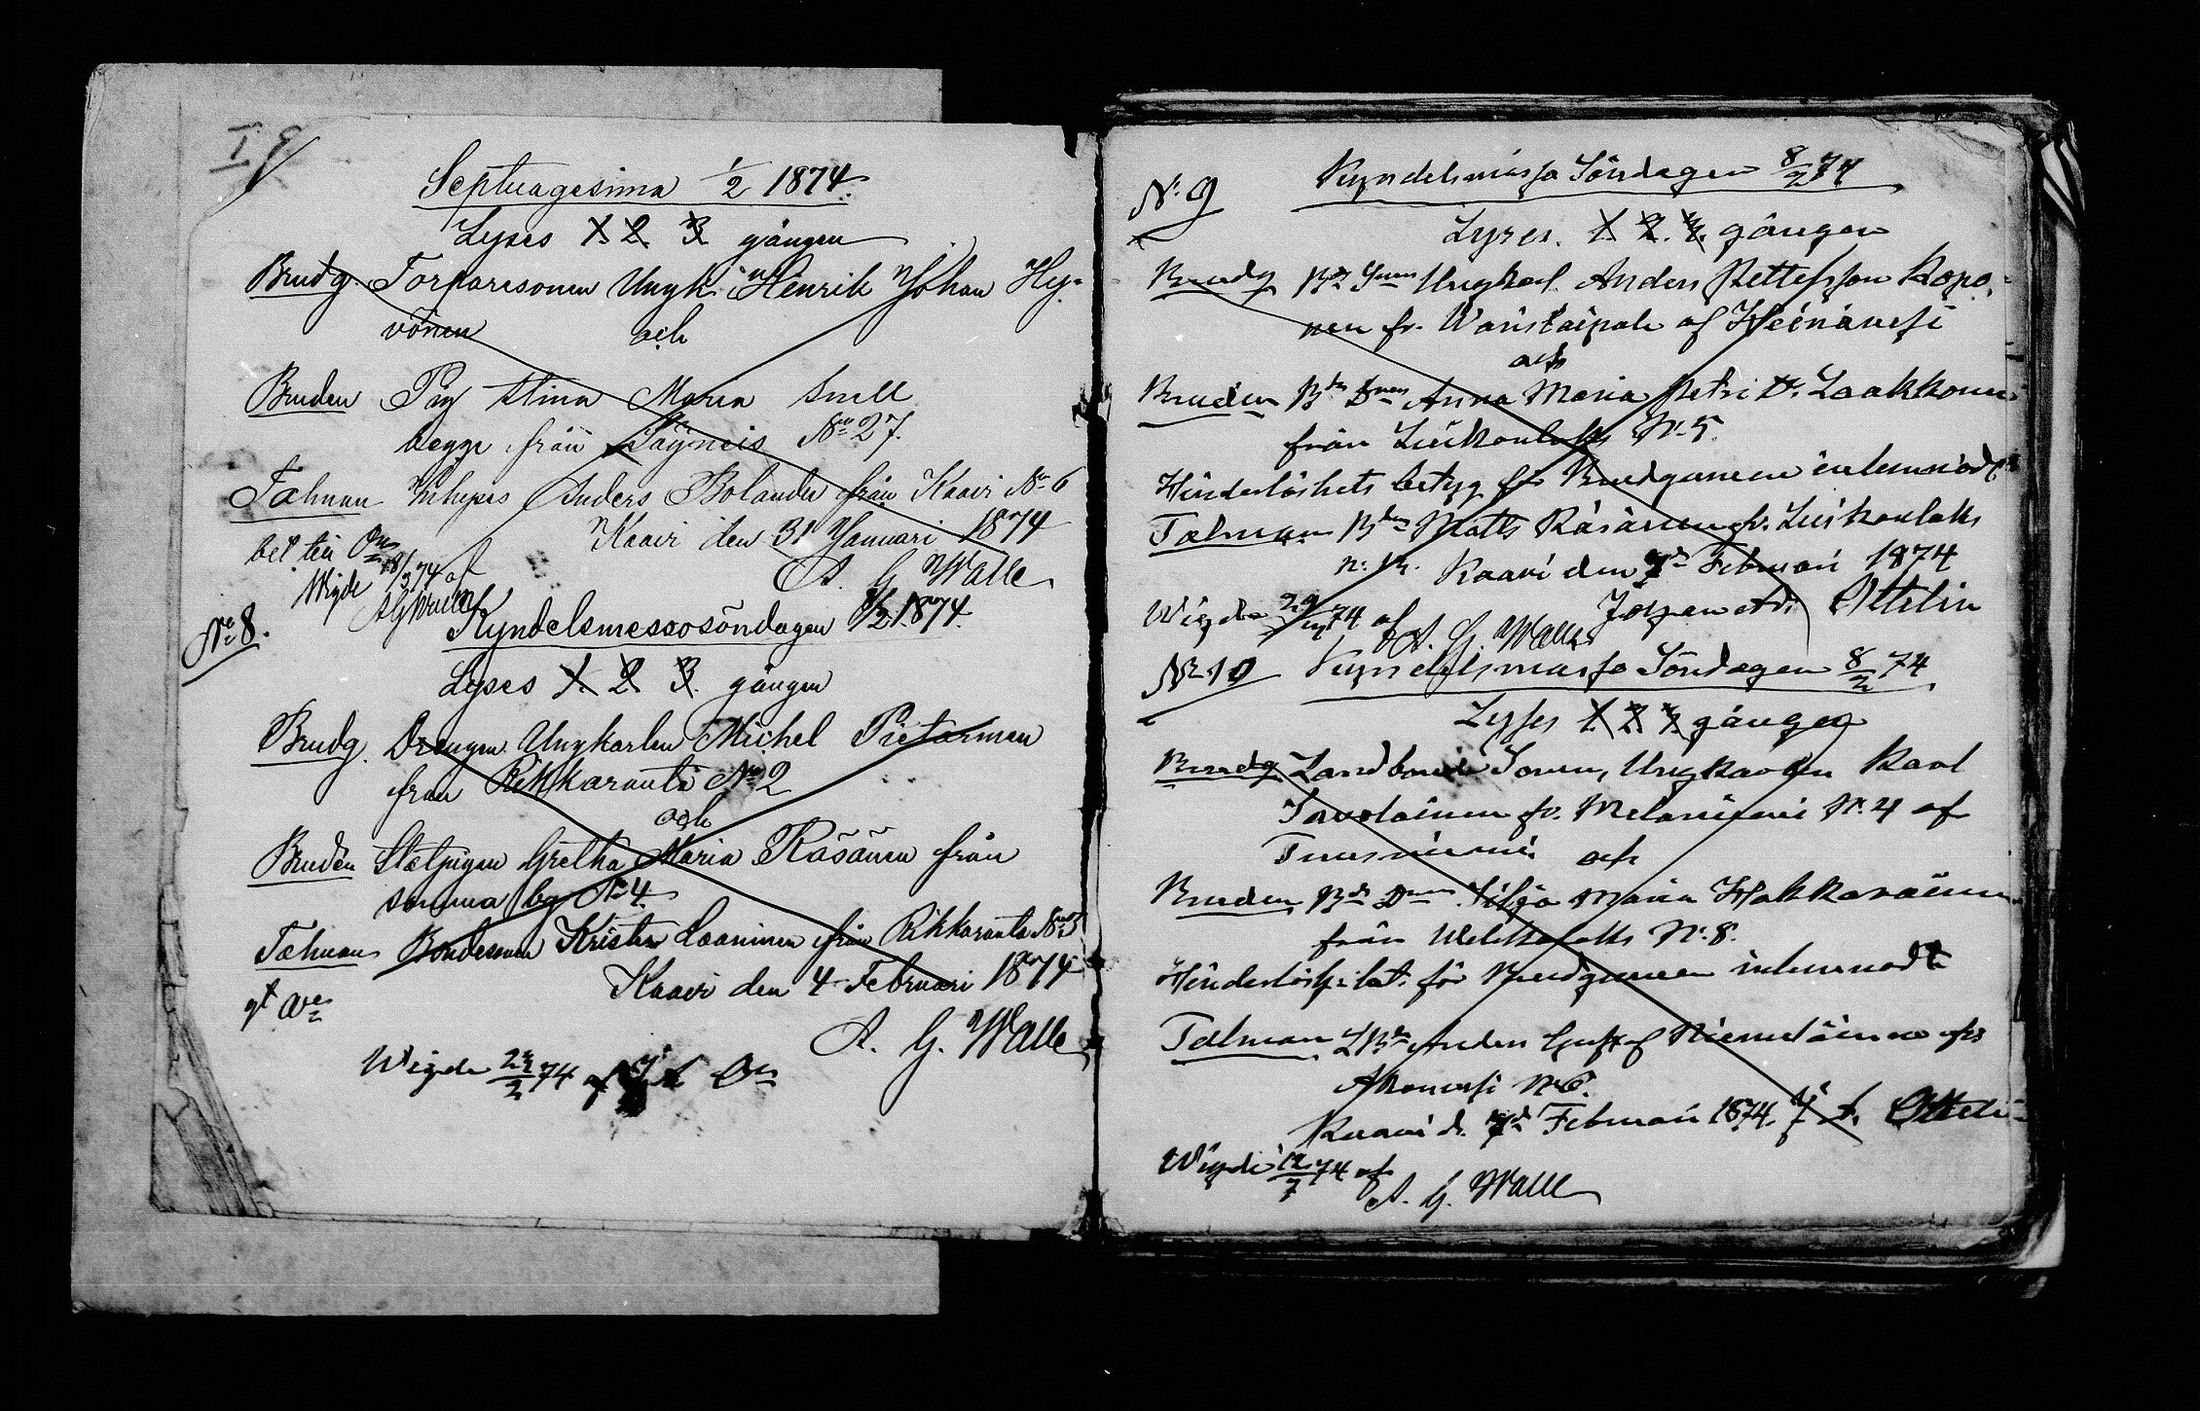 Septuagesima 1/2 1874.
Lyses 1. 2. 3. gången
Brudg. Torparesonen Ungk. Henrik Johan Hy-
vönen och
Bruden Pig Stina Maria Snell
begge från Säyneis No 27.
Talman Inhyses Anders Bolander från Kaavi No 6
Kaavi den 31 Januari 1874
A. G. Walle
Wigde 18/3 74 af
A G Walle
No 8.
Kyndelsmessosöndagen 8/2 1874.
Lyses 1. 2. 3. gången
Brudg. Drengen Ungkarlen Michel Pietarinen
från Rikkaranta No 2
och
Bruden Statpigan Gretha Maria Räsänen från
samma by No 4
Talman Bondesonen Krister Laaninen från Rikkaranta No 5
Kaavi den 4 Februari 1874
A. G. Walle
Wigde /2 74 af
N: 9
Kyndelsmässo Söndagen 8/2 74
Lyses. 1. 2. 3. gången
Brudg Bd Snen Ungkarl. Anders Pettersson Kopo-
nen fr. Waristaipale af Heinävesi
och
Bruden Bds Dren Anna Maria Petri Dr. Laakkonen
från Luikonlaks N: 5.
Hinderlöshets betyg för Brudgummen inlemnadt
Talman Bdn Matts Räsänen fr. Luikonlaks
Kaavi den 7d Februari 1874
Johan Ad. Ottelin
Wigde 74 af
A. G. Walle
Nr 10 Kyndelsmässo Söndagen 8/2 74
Lyses 1. 2. 3. gången
Brudg Landbonde Sonen, Ungkarlen Karl
Savolainen fr. Melaniemi N: 4 af
Tuusniemi och
Bruden Bds Dren Maria Hakkarainen
från N: 8.
Hinderlösh: bet. för Brudgummen inlemnadt
Talman LBdn Anders Gustaf Niemeläinen från
N: 6.
Kaavi d. 7d Februari 1874. J. A. Ottelin
Wigde 12/7 74 af
A. G. Walle